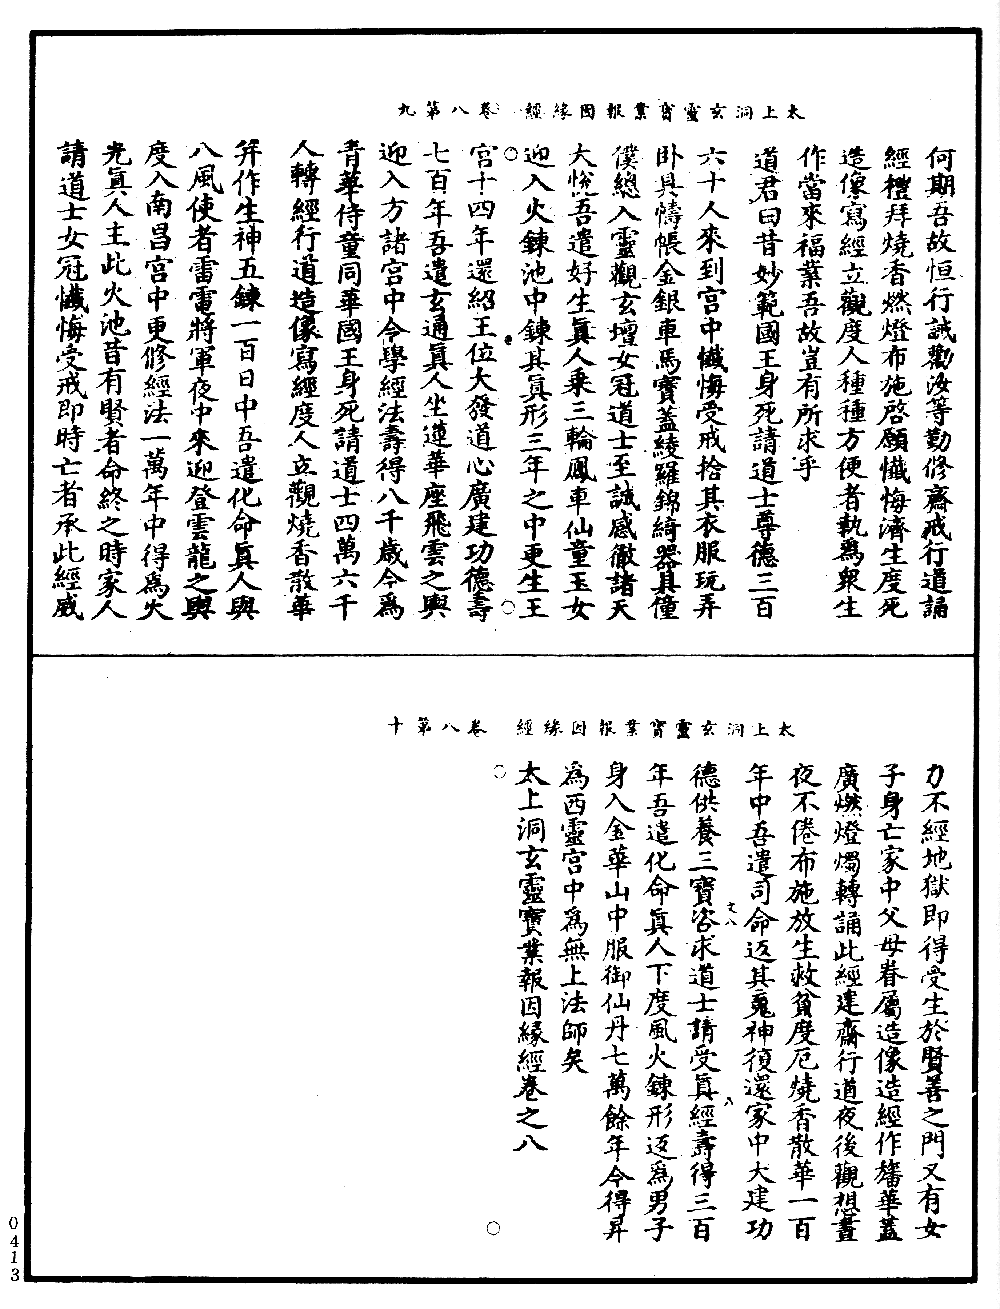 太上洞玄靈寶業報因緣經 卷八第九
何期吾故恒行誡勸汝等勤修齋戒行道誦
經禮拜燒香燃燈布施啓願懺悔濟生度死
造像寫經立觀度人種種方便者執爲衆生
作當來福業吾故豈有所求乎
道君曰昔妙範國王身死請道士尊德三百
六十人來到宮中懺悔受戒捨其衣服玩弄
卧具幬帳金銀車馬寶蓋綾羅錦綺器具僮
僕總入靈觀玄壇女冠道士至誠感徹諸天
大悅吾遣好生眞人乘三輪鳳車仙童玉女
迎入火鍊池中鍊其眞形三年之中更生王
宮十四年還紹王位大發道心廣建功德壽
七百年吾遣玄通眞人坐蓮華座飛雲之輿
迎入方諸宮中令學經法壽得八千歲今爲
青華侍童同華國王身死請道士四萬六千
人轉經行道造像寫經度人立觀燒香散華
并作生神五鍊一百日中吾遣化命眞人與
八風使者雷電將軍夜中來迎登雲龍之輿
度入南昌宮中更修經法一萬年中得爲火
光眞人主此火池昔有賢者命終之時家人
請道士女冠懺悔受戒即時亡者承此經威
太上洞玄靈寶業報因緣經 卷八第十
力不經地獄即得受生於賢善之門又有女
子身亡家中父母眷屬造像造經作旛華蓋
廣燃燈燭轉誦此經建齋行道夜後觀想晝
夜不倦布施放生救貧度厄燒香散華一百
年中吾遣司命返其魂神復還家中大建功
德供養三寶咨求道士請受眞經壽得三百
文八
八
年吾遣化命眞人下度風火鍊形返爲男子
身入金華山中服御仙丹七萬餘年今得昇
爲西靈宮中爲無上法師矣
太上洞玄靈寶業報因緣經卷之八
0413